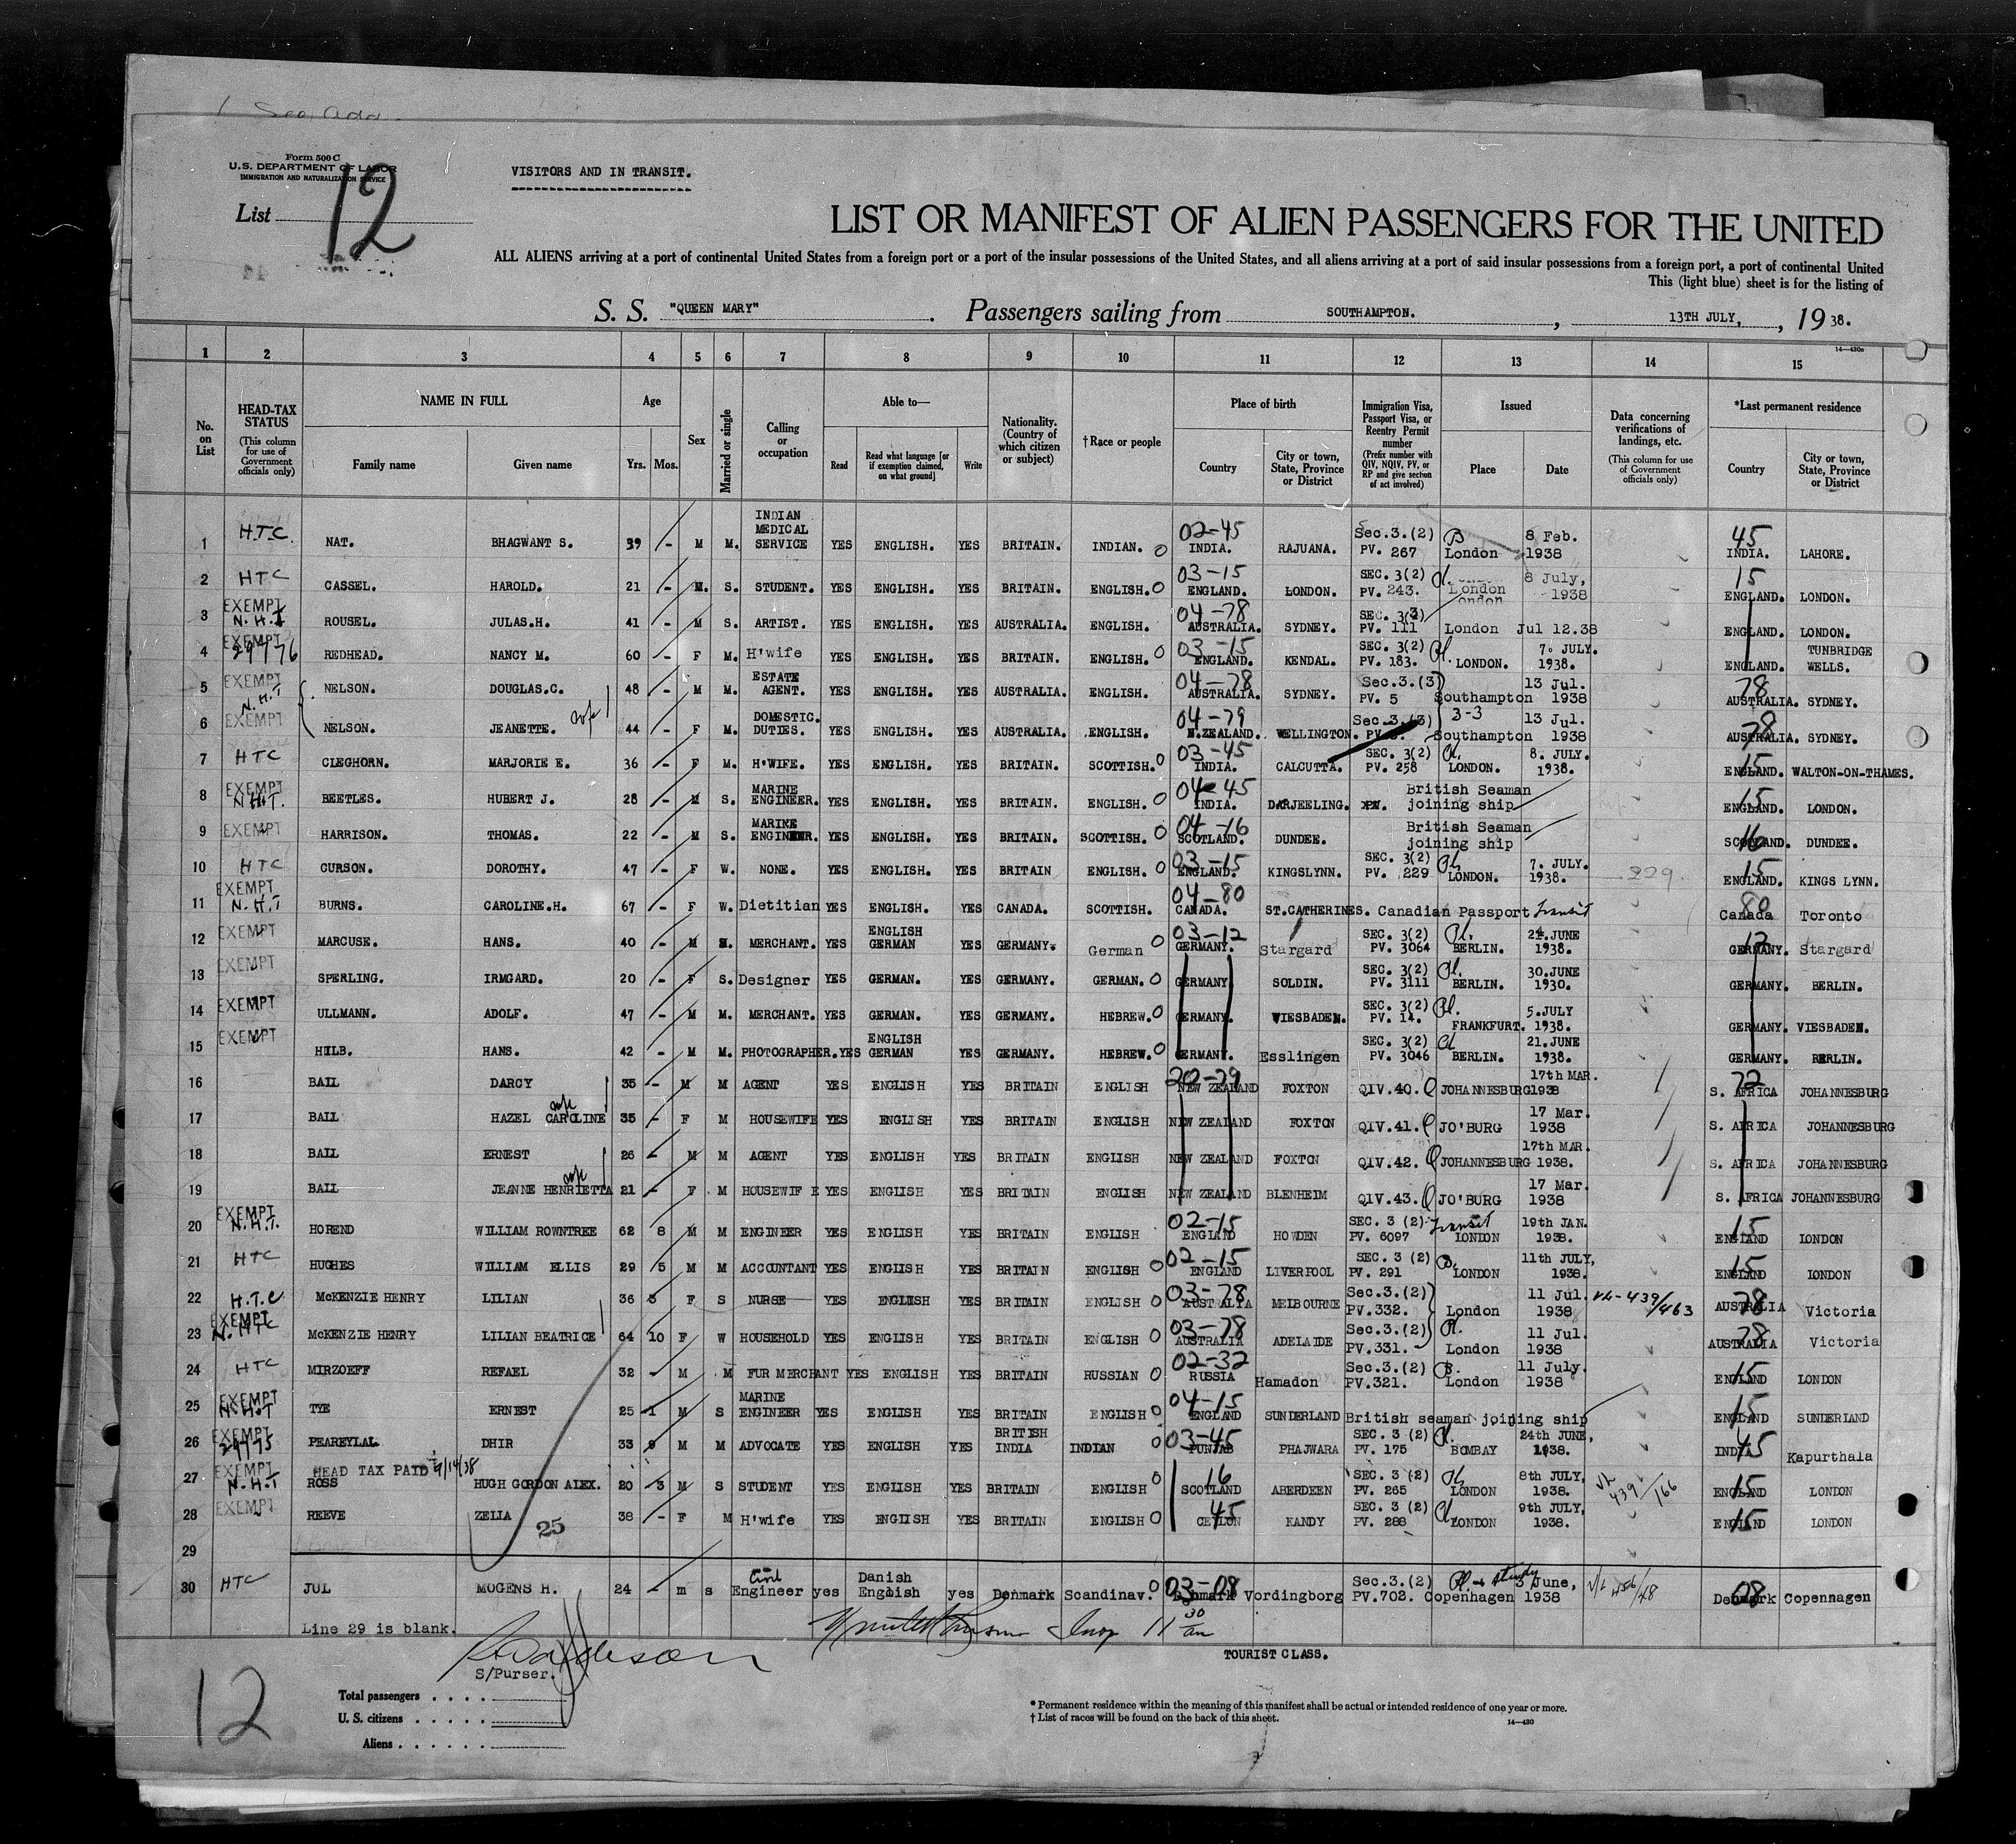 Form 500 C
U.S. DEPARTMENT OF LABOR
IMMIGRATION AND NATURALIZATION SERVICE
VISITORS AND IN TRANSIT.
List 12
LIST OR MANIFEST OF ALIEN PASSENGERS FOR THE UNITED
ALL ALIENS arriving at a port of continental United States from a foreign port or a port of the insular possessions of the United States, and all aliens arriving at a port of said insular possessions from a foreign port, a port of continental United
This (light blue) sheet is for the listing of
S. S. "QUEEN MARY". Passengers sailing from SOUTHAMPTON., 13TH JULY, , 1938.
14—430a
1 2 3 4 5 6 7 8 9 10 11 12 13 14 15
No. on List
HEAD-TAX STATUS (This column for use of Government officials only)
NAME IN FULL Family name Given name
Age Yrs. Mos.
Sex
Married or single
Calling or occupation
Able to— Read Read what language [or if exemption claimed, on what ground] Write
Nationality. (Country of which citizen or subject)
†Race or people
Place of birth Country City or town, State, Province or District
Immigration Visa, Passport Visa, or Reentry Permit number (Prefix number with QIV, NQIV, PV, or RP and give section of act involved)
Issued Place Date
Data concerning verifications of landings, etc. (This column for use of Government officials only)
*Last permanent residence Country City or town, State, Province or District
1 HTC. NAT. BHAGWANT S. 39 - M M. INDIAN MEDICAL SERVICE YES ENGLISH. YES BRITAIN. INDIAN. O 02-45 INDIA. RAJUANA. Sec.3.(2) PV. 267 London 8 Feb. 1938 45 INDIA. LAHORE.
2 HTC CASSEL. HAROLD. 21 - M. S. STUDENT. YES ENGLISH. YES BRITAIN. ENGLISH. O 03-15 ENGLAND. LONDON. SEC. 3(2) PV. 243. London 8 July, 1938 15 ENGLAND. LONDON.
3 EXEMPT N.H.T ROUSEL. JULAS.H. 41 - M S. ARTIST. YES ENGLISH. YES AUSTRALIA. ENGLISH. 04-78 AUSTRALIA. SYDNEY. SEC. 3(3) PV. 111 London Jul 12.38 ENGLAND. LONDON.
4 EXEMPT 29776 REDHEAD. NANCY M. 60 - F M. H'wife YES ENGLISH. YES BRITAIN. ENGLISH. O 03-15 ENGLAND. KENDAL. SEC. 3(2) PV. 183. LONDON. 7. JULY. 1938. ENGLAND. TUNBRIDGE WELLS.
5 EXEMPT N.H.T NELSON. DOUGLAS.C. 48 - M M. ESTATE AGENT. YES ENGLISH. YES AUSTRALIA. ENGLISH. 04-78 AUSTRALIA. SYDNEY. Sec.3.(3) PV. 5 Southampton 13 Jul. 1938 78 AUSTRALIA. SYDNEY.
6 EXEMPT NELSON. JEANETTE. wife 44 - F M. DOMESTIC. DUTIES. YES ENGLISH. YES AUSTRALIA. ENGLISH. 04-79 N.ZEALAND. WELLINGTON. Sec.3.(3) 3-3 Southampton 13 Jul. 1938 78 AUSTRALIA. SYDNEY.
7 HTC CLEGHORN. MARJORIE E. 36 - F M. H'WIFE. YES ENGLISH. YES BRITAIN. SCOTTISH. O 03-45 INDIA. CALCUTTA. SEC. 3(2) PV. 258 LONDON. 8. JULY. 1938. 15 ENGLAND. WALTON-ON-THAMES.
8 EXEMPT N.H.T. BEETLES. HUBERT J. 28 - M S. MARINE ENGINEER. YES ENGLISH. YES BRITAIN. ENGLISH. O 04-45 INDIA. DARJEELING. PV. British Seaman joining ship 15 ENGLAND. LONDON.
9 EXEMPT HARRISON. THOMAS. 22 - M S. MARINE ENGINEER. YES ENGLISH. YES BRITAIN. SCOTTISH. O 04-16 SCOTLAND. DUNDEE. British Seaman joining ship 16 SCOTLAND. DUNDEE.
10 HTC CURSON. DOROTHY. 47 - F W. NONE. YES ENGLISH. YES BRITAIN ENGLISH. O 03-15 ENGLAND. KINGSLYNN. SEC. 3(2) PV. 229 LONDON. 7. JULY. 1938. 229 15 ENGLAND. KINGS LYNN.
11 EXEMPT N.H.T BURNS. CAROLINE.H. 67 - F W. Dietitian YES ENGLISH. YES CANADA. SCOTTISH. 04-80 CANADA. ST.CATHERINES. Canadian Passport Transit 80 Canada Toronto
12 EXEMPT MARCUSE. HANS. 40 - M M. MERCHANT. YES ENGLISH GERMAN YES GERMANY. German O 03-12 GERMANY. Stargard SEC. 3(2) PV. 3064 BERLIN. 24.JUNE 1938. 12 GERMANY. Stargard
13 EXEMPT SPERLING. IRMGARD. 20 - F S. Designer YES GERMAN. YES GERMANY. GERMAN. O GERMANY SOLDIN. SEC. 3(2) PV. 3111 BERLIN. 30.JUNE 1930. GERMANY. BERLIN.
14 EXEMPT ULLMANN. ADOLF. 47 - M M. MERCHANT. YES GERMAN. YES GERMANY. HEBREW. O GERMANY. WIESBADEN. SEC. 3(2) PV. 14. FRANKFURT. 5.JULY 1938. GERMANY. VIESBADEN.
15 EXEMPT HILB. HANS. 42 - M M. PHOTOGRAPHER. YES ENGLISH GERMAN YES GERMANY. HEBREW. O GERMANY. Esslingen SEC. 3(2) PV. 3046 BERLIN. 21.JUNE 1938. GERMANY. BERLIN.
16 BAIL DARCY 35 - M M AGENT YES ENGLISH YES BRITAIN ENGLISH 20-79 NEW ZEALAND FOXTON QIV.40. JOHANNESBURG 17th MAR. 1938 72 S. AFRICA JOHANNESBURG
17 BAIL HAZEL CAROLINE wife 35 - F M HOUSEWIFE YES ENGLISH YES BRITAIN ENGLISH NEW ZEALAND FOXTON QIV.41. JO'BURG 17 Mar. 1938 S. AFRICA JOHANNESBURG
18 BAIL ERNEST 26 - M M AGENT YES ENGLISH YES BRITAIN ENGLISH NEW ZEALAND FOXTON QIV.42. JOHANNESBURG 17th MAR. 1938. S. AFRICA JOHANNESBURG
19 BAIL JEANNE HENRIETTA wife 21 - F M HOUSEWIFE YES ENGLISH YES BRITAIN ENGLISH NEW ZEALAND BLENHEIM QIV.43. JO'BURG 17 Mar. 1938 S. AFRICA JOHANNESBURG
20 EXEMPT N.H.T. HOREND WILLIAM ROWNTREE 62 8 M M ENGINEER YES ENGLISH YES BRITAIN ENGLISH 02-15 ENGLAND HOWDEN SEC. 3 (2) PV. 6097 Transit LONDON 19th JAN. 1938. 15 ENGLAND LONDON
21 HTC HUGHES WILLIAM ELLIS 29 5 M M ACCOUNTANT YES ENGLISH YES BRITAIN ENGLISH O 02-15 ENGLAND LIVERPOOL SEC. 3 (2) PV. 291 LONDON 11th JULY, 1938. 15 ENGLAND LONDON
22 H.T.C McKENZIE HENRY LILIAN 36 3 F S NURSE YES ENGLISH YES BRITAIN ENGLISH O 03-78 AUSTRALIA MELBOURNE Sec.3.(2) PV.332. London 11 Jul. 1938 VL-439/463 78 AUSTRALIA Victoria
23 EXEMPT N.HTC McKENZIE HENRY LILIAN BEATRICE 64 10 F W HOUSEHOLD YES ENGLISH YES BRITAIN ENGLISH O 03-78 AUSTRALIA ADELAIDE Sec.3.(2) PV.331. London 11 Jul. 1938 78 AUSTRALIA Victoria
24 HTC MIRZOEFF REFAEL 32 - M M FUR MERCHANT YES ENGLISH YES BRITAIN RUSSIAN O 02-32 RUSSIA Hamadon Sec.3.(2) PV.321. London 11 July. 1938 15 ENGLAND LONDON
25 EXEMPT N.H.T TYE ERNEST 25 1 M S MARINE ENGINEER YES ENGLISH YES BRITAIN ENGLISH O 04-15 ENGLAND SUNDERLAND British seaman joining ship 15 ENGLAND SUNDERLAND
26 EXEMPT 29775 PEAREYLAL DHIR 33 9 M M ADVOCATE YES ENGLISH YES BRITISH INDIA INDIAN O 03-45 PUNJAB PHAJWARA SEC. 3 (2) PV. 175 BOMBAY 24th JUNE, 1938. 45 INDIA Kapurthala
HEAD TAX PAID 9/14/38
27 EXEMPT N.H.T ROSS HUGH GORDON ALEX. 20 3 M S STUDENT YES ENGLISH YES BRITAIN ENGLISH O 16 SCOTLAND ABERDEEN SEC. 3 (2) PV. 265 LONDON 8th JULY, 1938. VL 439/166 15 ENGLAND LONDON
28 EXEMPT REEVE ZELIA 38 - F M H'wife YES ENGLISH YES BRITAIN ENGLISH O 45 CEYLON KANDY SEC. 3 (2) PV. 288 LONDON 9th JULY, 1938. 15 ENGLAND LONDON
25
29
30 HTC JUL MOGENS H. 24 - m s Civil Engineer yes Danish English yes Denmark Scandinav. O 03-08 Denmark Vordingborg Sec.3.(2) PV.702. Copenhagen study 3 June, 1938 08 Denmark Copenhagen
Line 29 is blank.
11 30 am
S/Purser.
TOURIST CLASS.
12
Total passengers
U. S. citizens
Aliens
* Permanent residence within the meaning of this manifest shall be actual or intended residence of one year or more.
† List of races will be found on the back of this sheet.
14—430